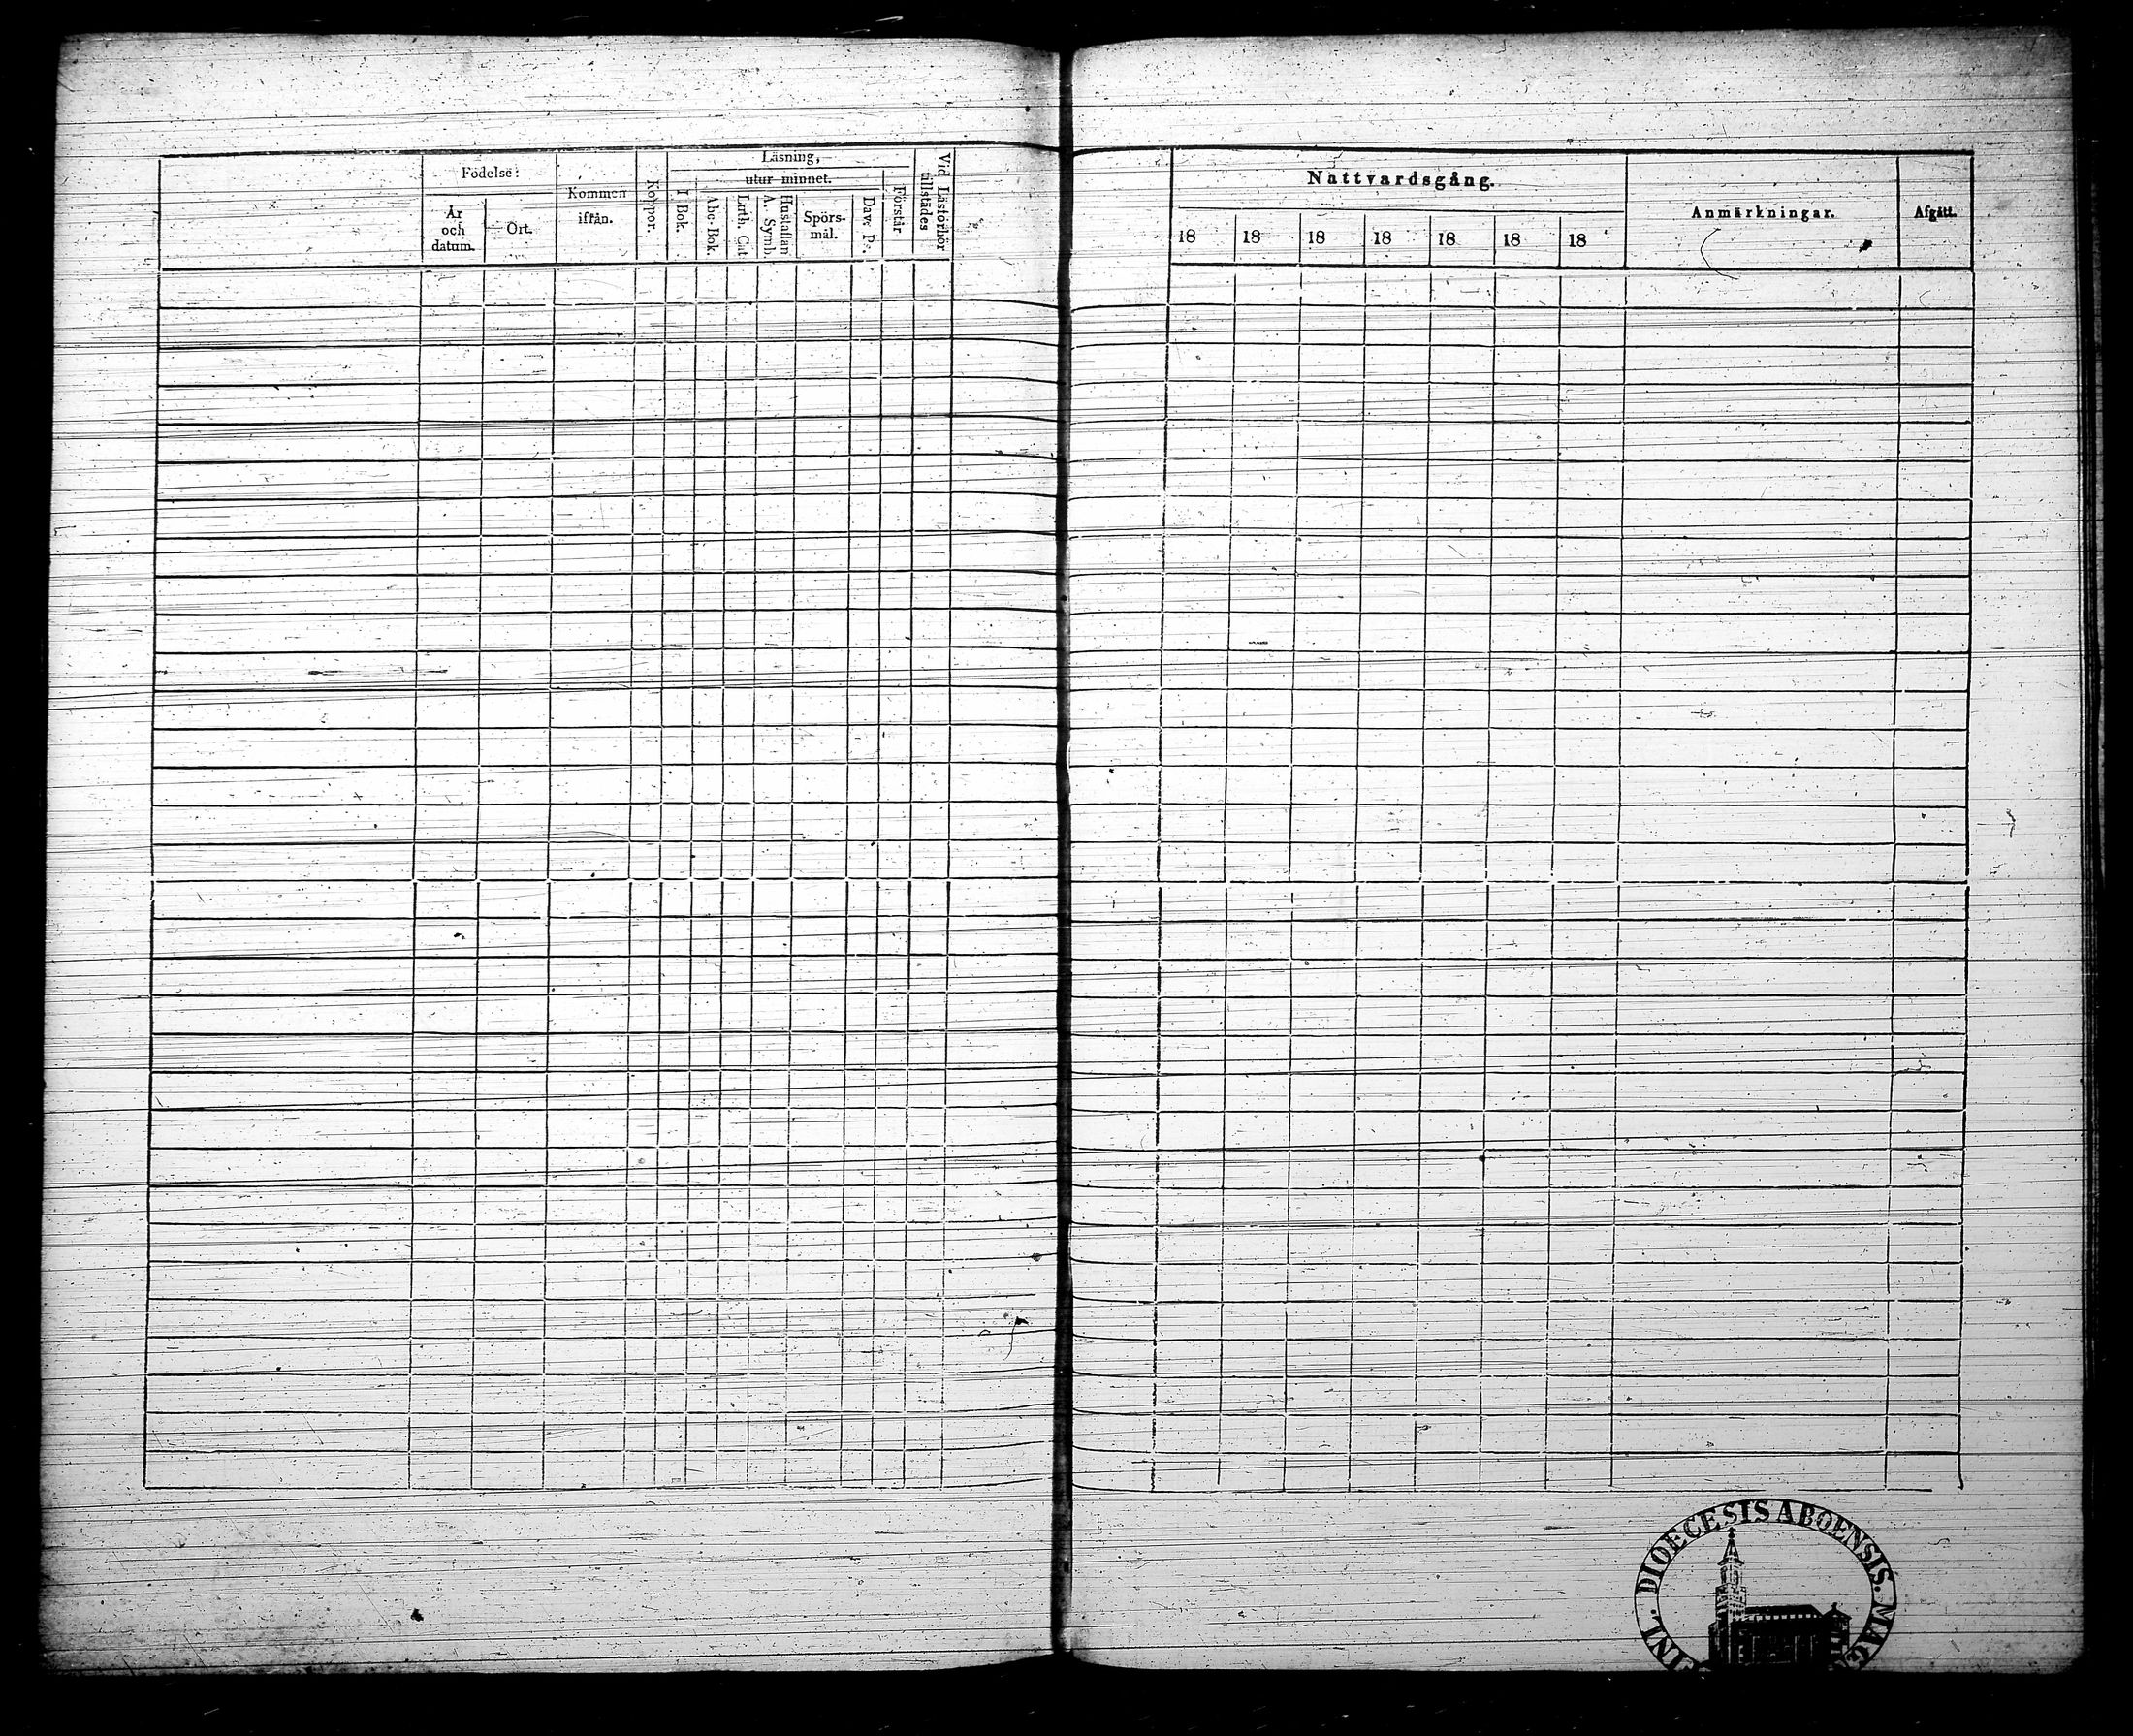 Födelse:
År
och
datum.
Ort.
Kommen
ifrån.
Koppor.
Läsning,
utur minnet.
I Bok.
Abc-Bok.
Luth. Cat
Hustaflan
A. Symb.
Spörs-
mål.
Dav. Ps.
Förstår
Vid Läsförhör
tillstädes
Nattvardsgång.
18 18 18 18 18 18 18
Anmärkningar.
Afgått.
DIOECESIS ABOENSIS.